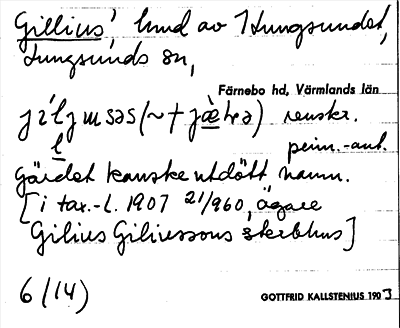 Gillius' hmd av Hungsundet,
Lungsunds sn,
Färnebo hd, Värmlands län
renskr.
penn.-ant.
gärdet kanske utdött namn.
[i tax.-l. 1907 21/960, ägare
Gilius Giliussons sterbhus]
6/14)
GOTTFRID KALLSTENIUS 1903